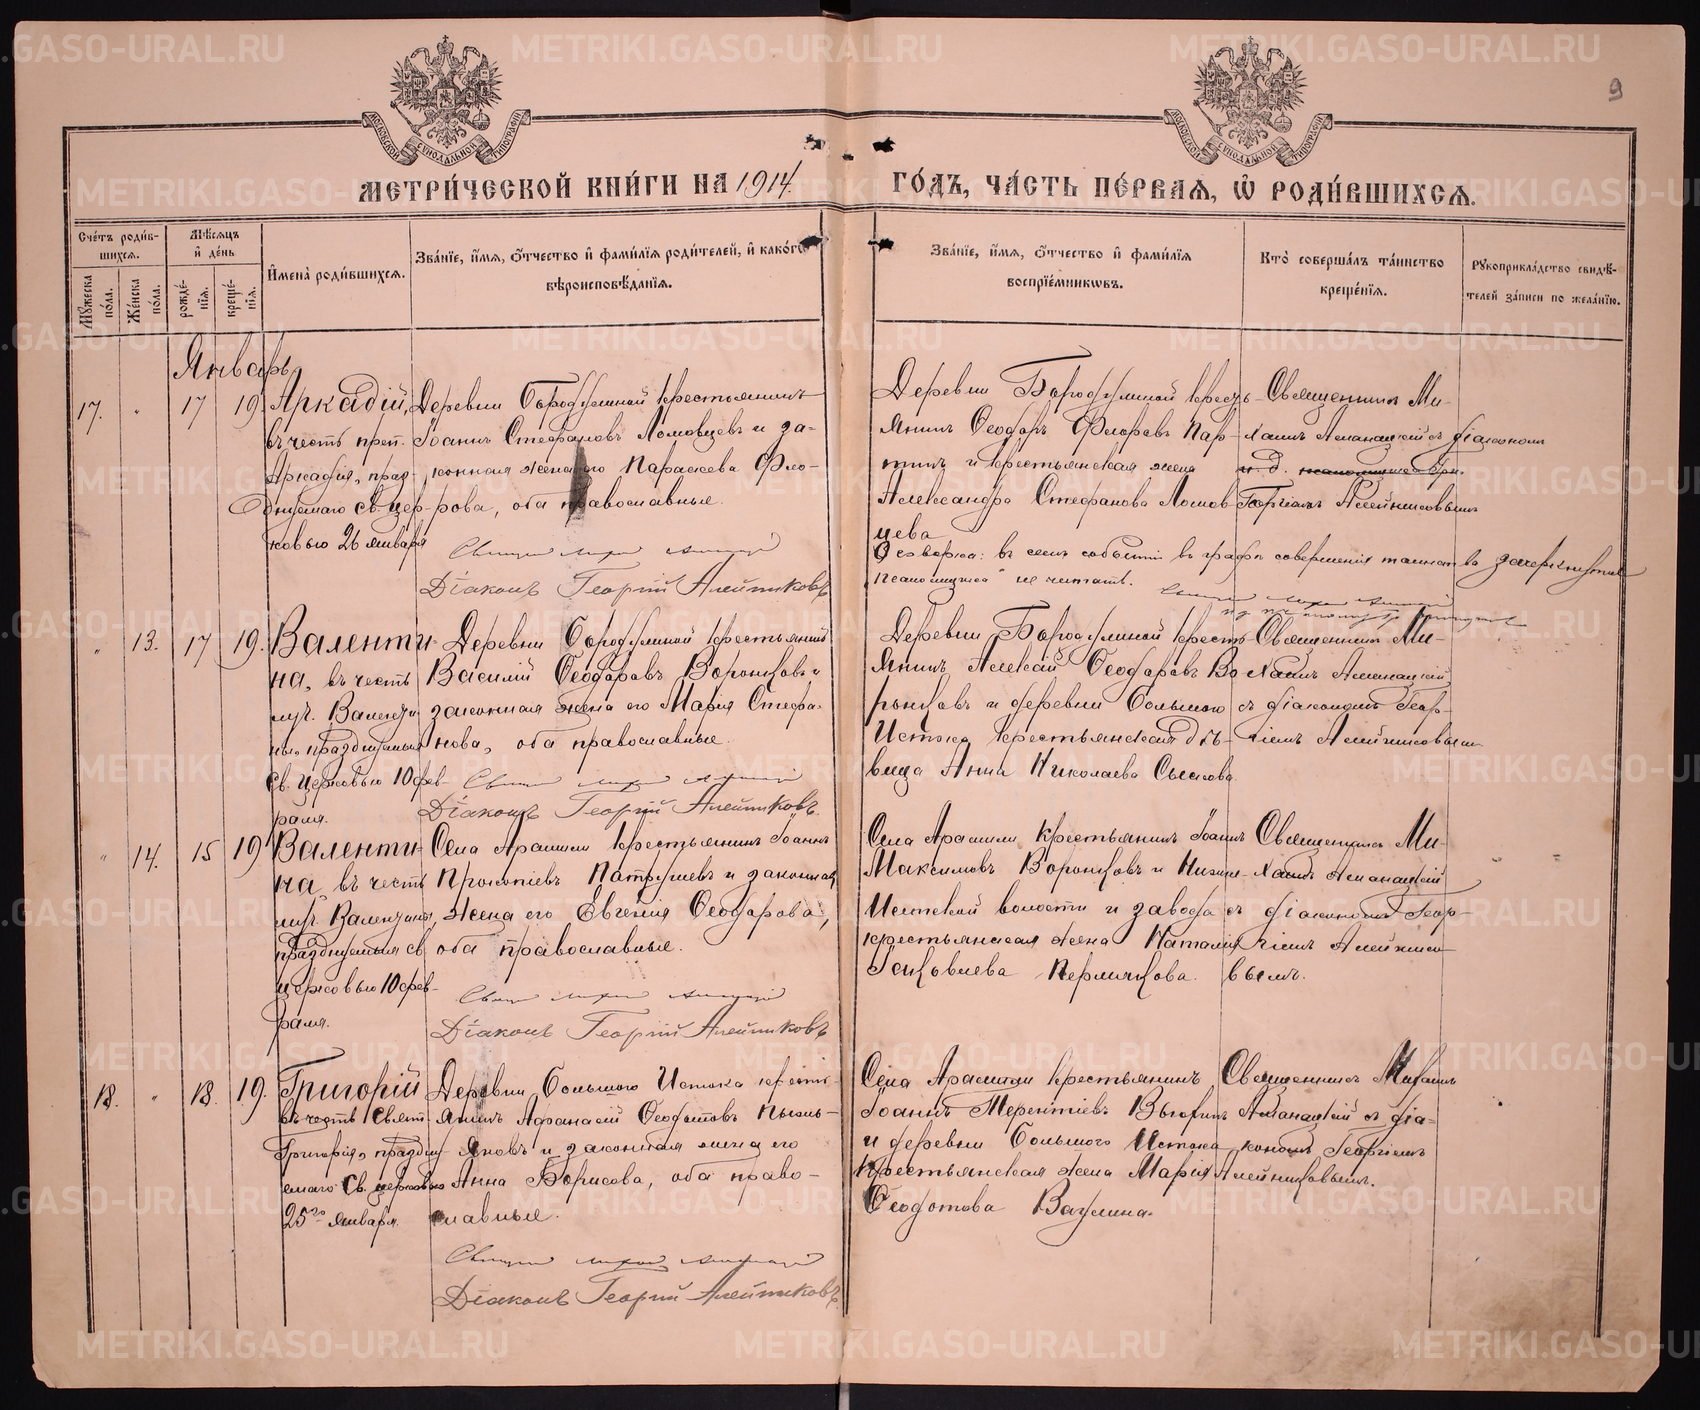 METRIKI.GASO-URAL.RU
9
МОСКОВСКОЙ СѴНОДАЛЬНОЙ ТИПОГРАФІИ
МОСКОВСКОЙ СѴНОДАЛЬНОЙ ТИПОГРАФІИ
МЕТРИ́ЧЕСКОЙ КНИ́ГИ НА 1914
ГО́ДЪ, ЧА́СТЬ ПЕ́РВАѦ, Ѽ РОДИ́ВШИХСѦ.
Сче́тъ роди́в-
шихсѧ.
Мѣ́сѧцъ
и҆ де́нь
Мꙋ́жеска по́ла.
Же́нска по́ла.
рожде́-
нїѧ.
креще́-
нїѧ.
И҆мена̀ роди́вшихсѧ.
Зва́нїе, и҆́мѧ, ѻ҆́тчество и҆ фами́лїѧ роди́телей, и҆ како́гѡ
вѣроисповѣ́данїѧ.
Зва́нїе, и҆́мѧ, ѻ҆́тчество и҆ фами́лїѧ
воспрїе́мникѡвъ.
Кто̀ соверша́лъ та́инство
креще́нїѧ.
Рꙋкоприкла́дство свидѣ́-
телей за́писи по жела́нїю.
Январь
17. " 17 19
Аркадій,
въ честь преп.
Аркадія, празд-
днуемаго св. цер-
ковью 26 января
Деревни Бородулиной крестьянинъ
Іоаннъ Стефановъ Ломовцевъ и за-
конная жена его Параскева Фло-
рова, оба православные.
Діаконъ Георгій Алейниковъ
Деревни Бородулиной кресть-
янинъ Ѳеодоръ Флоровъ Пар-
тинъ и крестьянская жена
Александра Стефанова Ломов-
цева
Священникъ Ми-
хаилъ с діакономъ
и. д. псаломщика
Георгіемъ Алейниковымъ
Оговорка: въ семъ событіи въ графѣ совершенія таинства зачеркнутое
"псаломщика" не читать.
" 13. 17 19.
Валенти-
на, въ честь
муч. Валенти-
ны, празднуемыя
св. церковью 10 фев-
раля.
Деревни Бородулиной крестьянинъ
Василій Ѳеодоровъ Воронцовъ и
законная жена его Марія Стефа-
нова, оба православные.
Діаконъ Георгій Алейниковъ
Деревни Бородулиной кресть-
янинъ Алексѣй Ѳеодоровъ Во-
ронцовъ и деревни Большого
Истока крестьянская дѣ-
вица Анна Николаева Сысолова
Священникъ Ми-
хаилъ
съ діакономъ Геор-
гіемъ Алейниковымъ
" 14. 15 19
Валенти-
на въ честь
муч. Валентины,
празднуемыя св.
церковью 10 фев-
раля.
Села Арамили крестьянинъ Іоаннъ
Прокопіевъ Патрушевъ и законная
жена его Евгенія Ѳеодорова,
оба православные.
Діаконъ Георгій Алейниковъ
Села Арамили крестьянинъ Іоаннъ
Максимовъ Воронцовъ и Нижне-
Исетской волости и завода
крестьянская жена Наталія
Перминова.
Священникъ Ми-
хаилъ
съ діакономъ Геор-
гіемъ Алейнико-
вымъ.
18. " 18. 19.
Григорій
въ честь Свят.
Григорія, праздну-
емаго св. церковью
25го января.
Деревни Большого Истока кресть-
янинъ Афанасій Ѳеодотовъ Пьянь-
ковъ и законная жена его
Анна Борисова, оба право-
славные.
Діаконъ Георгій Алейниковъ
Села Арамили крестьянинъ
Іоаннъ Терентіевъ
и деревни Большого Истока
крестьянская жена Марія
Ѳеодотова Ваулина.
Священникъ Михаилъ
съ діа-
кономъ Георгіемъ
Алейниковымъ.